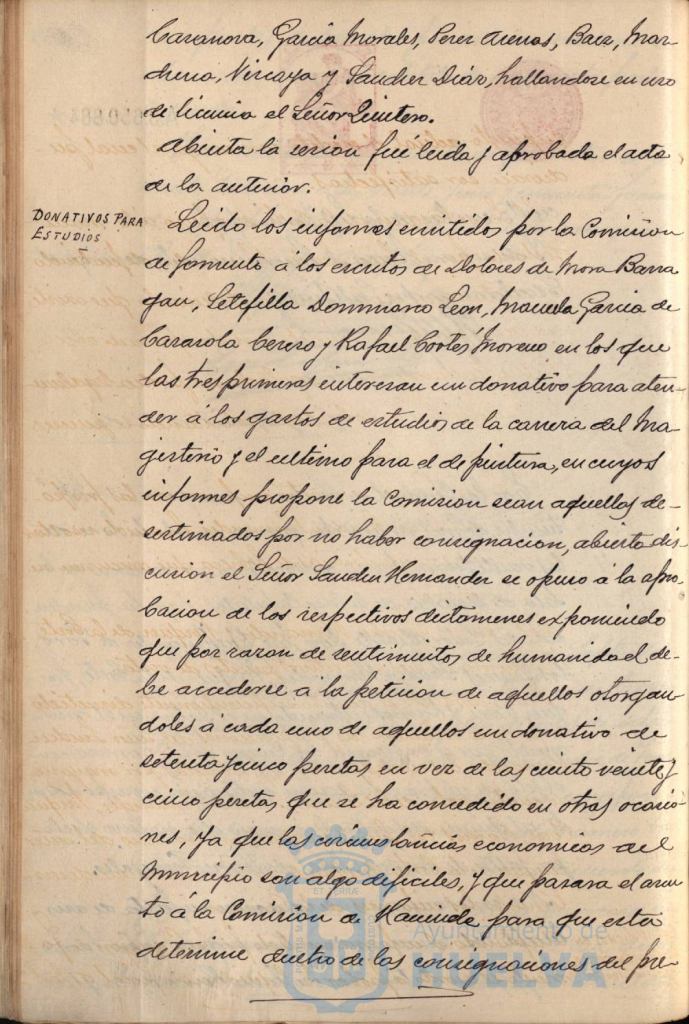 Casanova, García Morales, Perez Arenas, Baez, Mar-
chena, Vizcaya y Sanchez Diaz, hallandose en uso
de licencia el Señor Quintero.
Abierta la sesion fué leida y aprobada el acta
de la anterior.
DONATIVOS PARA
ESTUDIOS
Leido los informes emitidos por la Comision
de fomento á los escritos de Dolores de Mora Barra
gan, Setefilla Dommarco Leon, Manuela Garcia de
Casasola Cerezo y Rafael Cortés Moreno en los que
las tres primeras interesan un donativo para aten-
der á los gastos de estudios de la carrera del Ma-
gisterio y el ultimo para el de pintura, en cuyos
informes propone la Comision sean aquellos de-
sestimados por no haber consignacion, abierta dis-
cusion el Señor Sanchez Hernandez se opuso á la apro-
bacion de los respectivos dictamenes exponiendo
que por razon de sentimientos de humanidad de-
be accederse á la peticion de aquellos otorgan-
doles á cada uno de aquellos un donativo de
setenta y cinco pesetas en vez de las ciento veinte y
cinco pesetas que se ha concedido en otras ocasio-
nes, ya que las circunstancias economicas del
Municipio son algo dificiles, y que pasara el asun
to á la Comision de Hacienda para que esta
determine dentro de las consignaciones del pre-
Ayuntamiento de
HUELVA